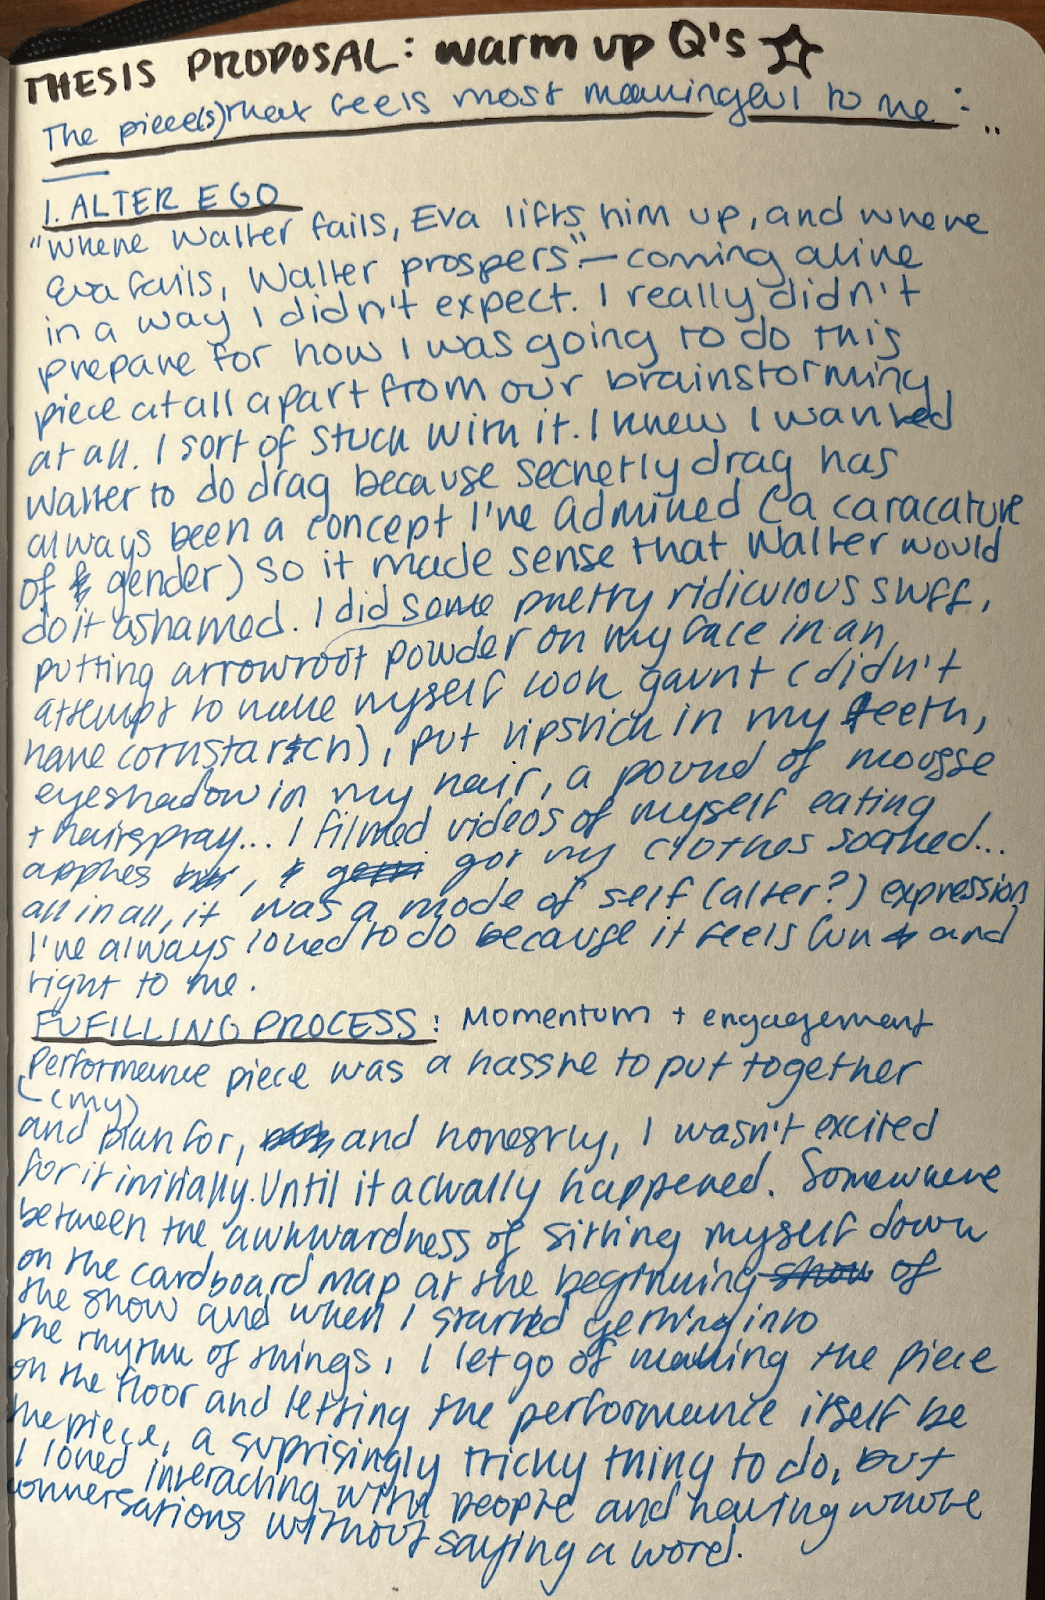 THESIS PROPOSAL: warm up Q's ☆
The piece(s) that feels most meaningful to me:
1. ALTER EGO
"Where Walter fails, Eva lifts him up, and where
Eva fails, Walter prospers" — coming alive
in a way I didn't expect. I really didn't
prepare for how I was going to do this
piece at all apart from our brainstorming
at all. I sort of stuck with it. I knew I wanted
Walter to do drag because secretly drag has
always been a concept I've admired (a caracature
of gender) so it made sense that Walter would
do it ashamed. I did some pretty ridiculous stuff,
putting arrowroot powder on my face in an
attempt to make myself look gaunt (didn't
have cornstartch), put lipstick in my teeth,
eyeshadow in my hair, a pound of mousse
+ hairspray... I filmed videos of myself eating
apples, got my clothes soaked...
all in all, it was a mode of self (alter?) expression
I've always loved to do because it feels fun and
right to me.
FUFILLING PROCESS: Momentum + engagement
Performance piece was a hassle to put together
(my)
and plan for, and honestly, I wasn't excited
for it initially. Until it actually happened. Somewhere
between the awkwardness of sitting myself down
on the cardboard map at the beginning show of
the show and when I started getting into
the rhythm of things, I let go of making the piece
on the floor and letting the performance itself be
the piece, a suprisingly tricky thing to do, but
I loved interacting with people and having whole
conversations without saying a word.